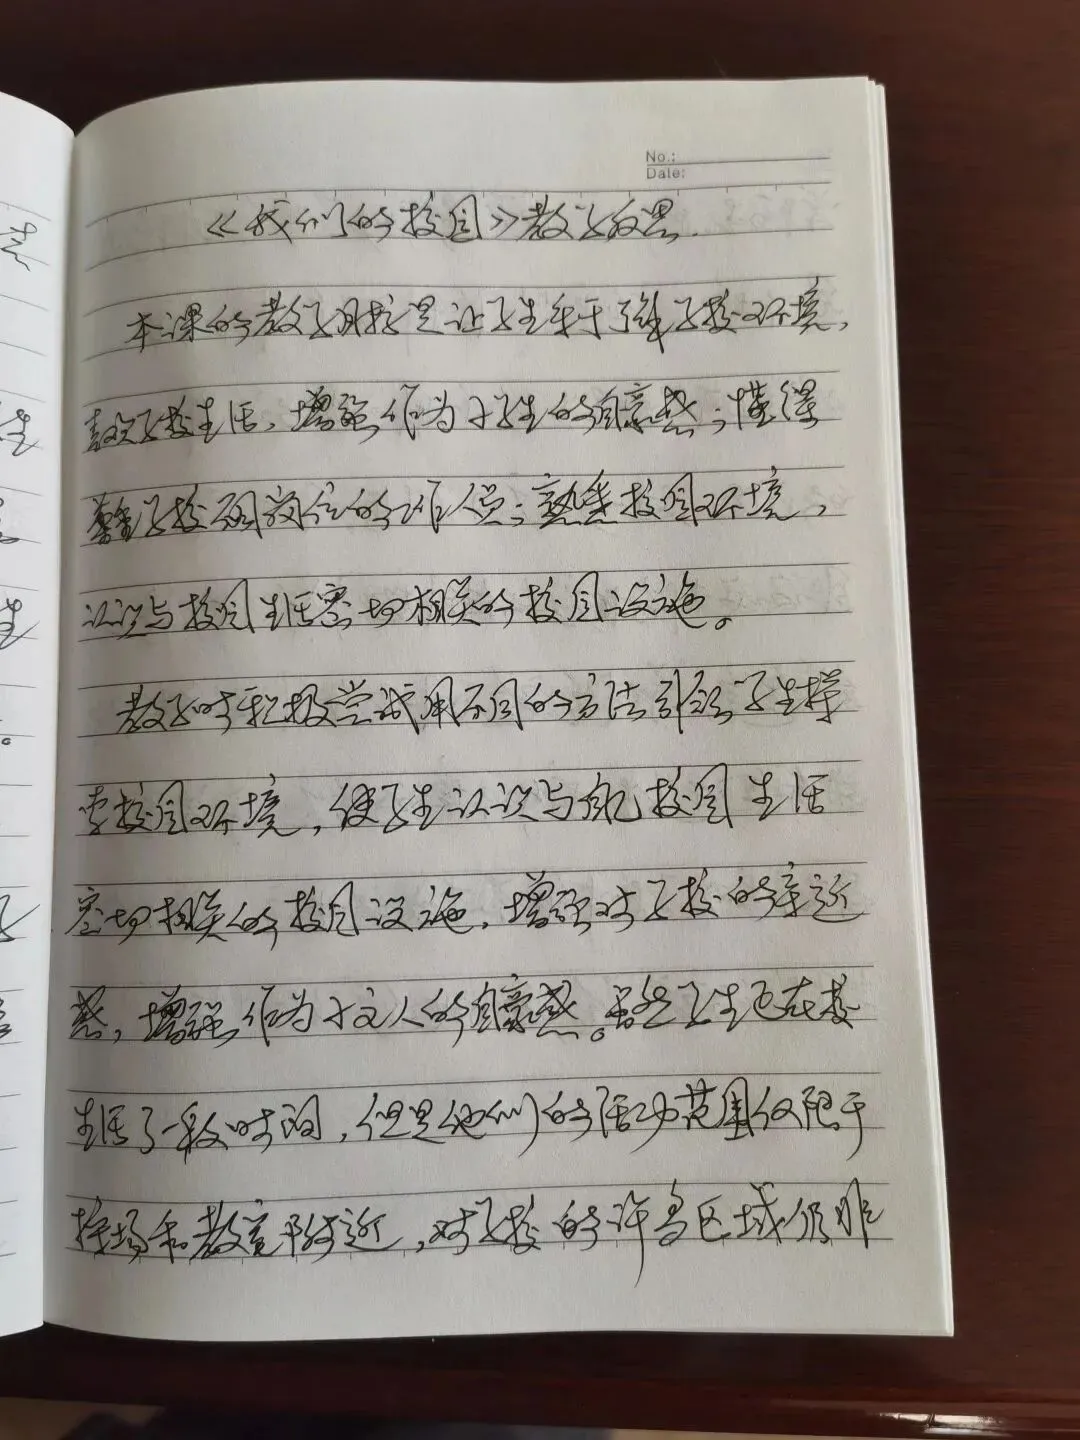 No.:
Date:
《我们的校园》教学反思
本课的教学目标是让学生乐于了解学校环境,
喜欢学校生活,增强作为小学生的自豪感;懂得
尊重学校的工作人员;熟悉校园环境,
认识与校园生活密切相关的校园设施。
教学时积极尝试用不同的方法引领学生探
索校园环境,使学生认识与自己校园生活
密切相关的校园设施,增强对学校的亲近
感,增强作为小主人的自豪感。虽然学生已在校
生活了一段时间,但是他们的活动范围仅限于
操场和教室附近,对学校的许多区域仍非